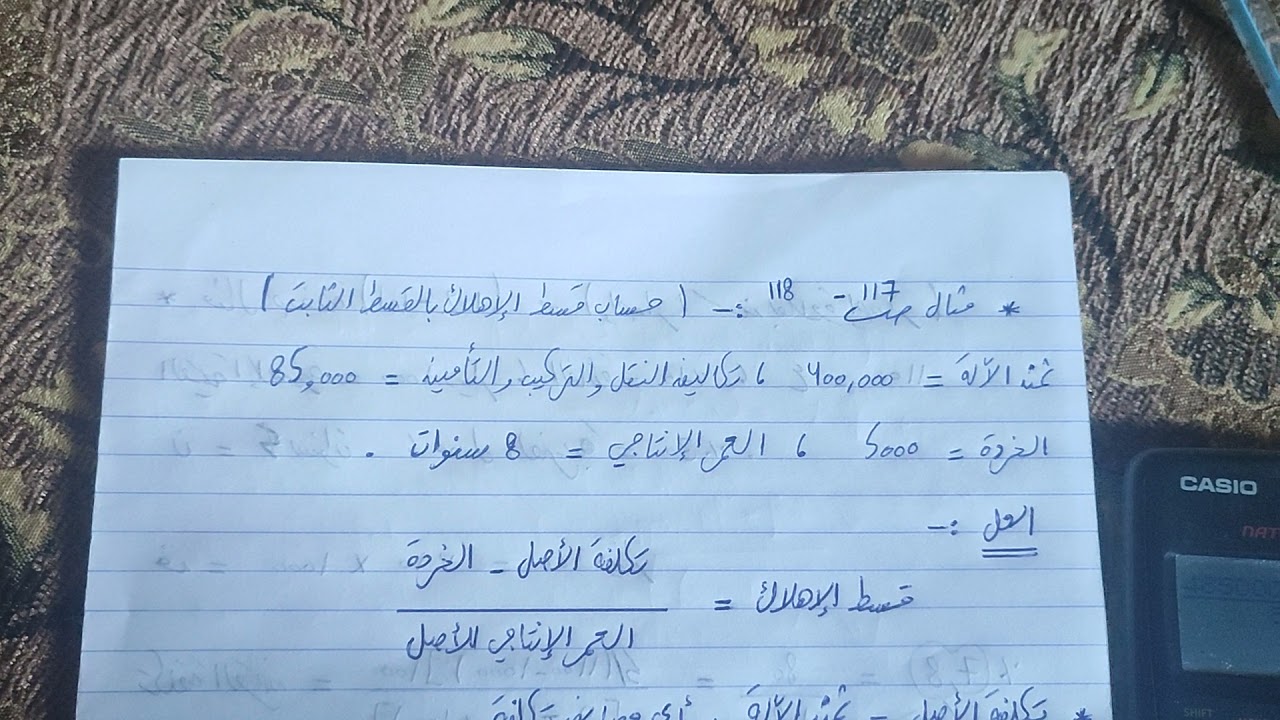 * مثال صـ 117 - 118 :- ( حساب قسط الإهلاك بالقسط الثابت )
ثمن الآلة = 400,000 ، تكاليف النقل والتركيب والتأمين = 85,000
الخردة = 5000 ، العمر الإنتاجي = 8 سنوات .
الحل :-
قسط الإهلاك = تكلفة الأصل - الخردة
العمر الإنتاجي للأصل
* تكلفة الأصل = ثمن الآلة + أي مصاريف تكلفة
CASIO
SHIFT